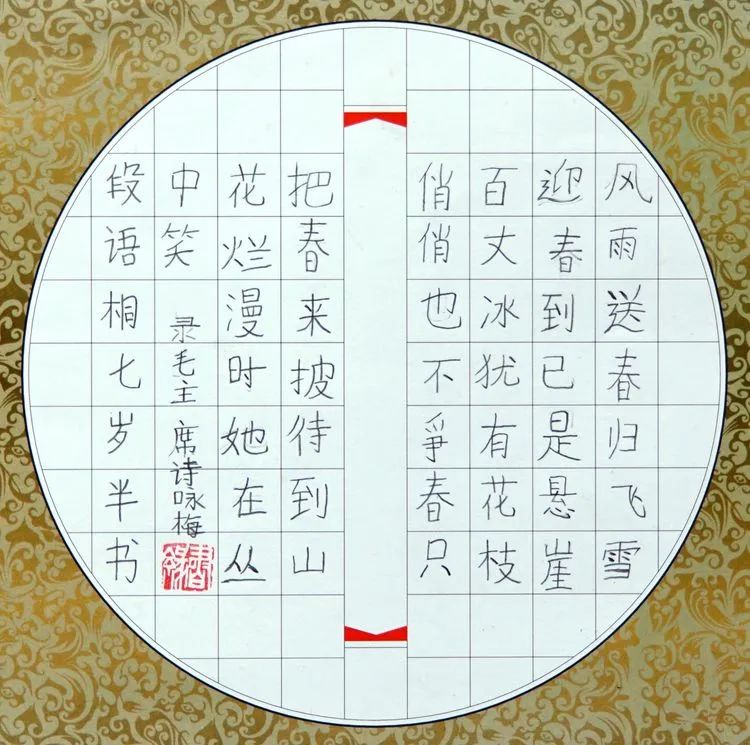 风雨送春归飞雪
迎春到已是悬崖
百丈冰犹有花枝
俏俏也不爭春只
把春来披待到山
花烂漫时她在丛
中笑
录毛主席诗咏梅
段语桐七岁半书